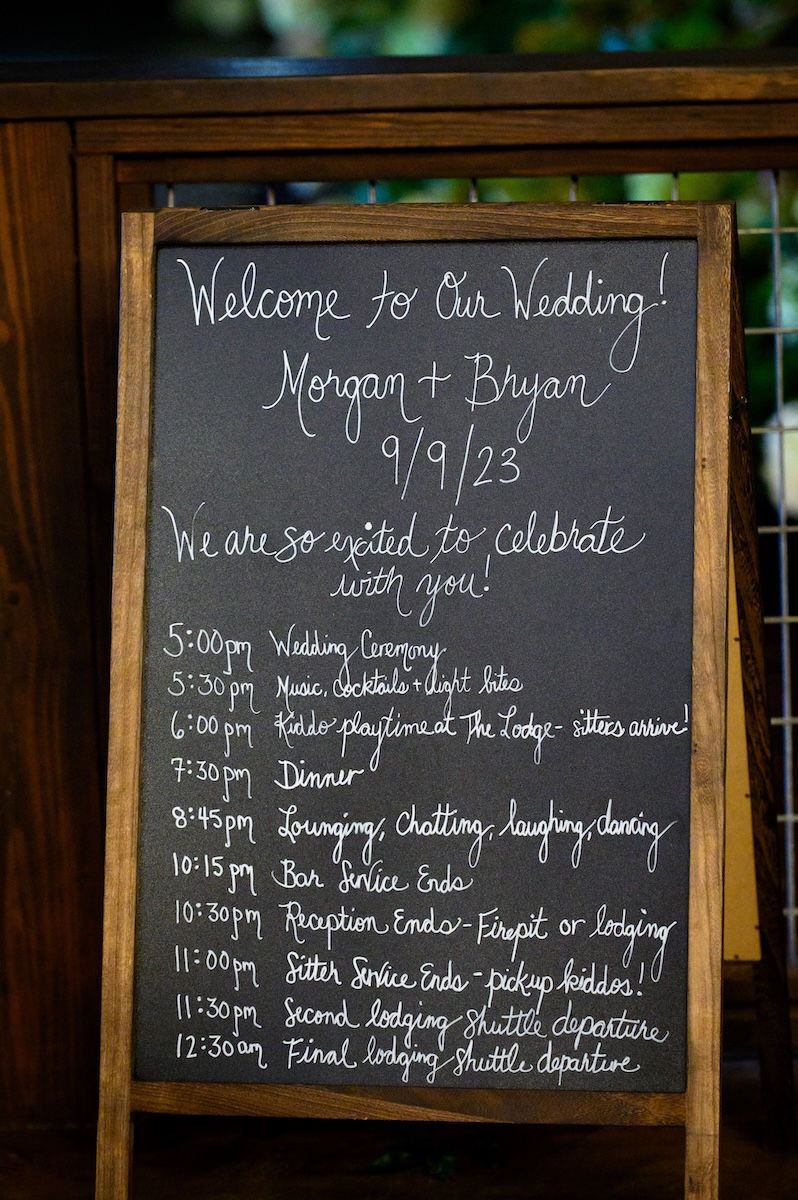 Welcome to Our Wedding!
Morgan + Bryan
9/9/23
We are so excited to celebrate
with you!
5:00pm Wedding Ceremony
5:30pm Music, Cocktails + light bites
6:00pm Kiddo playtime at The Lodge- sitters arrive!
7:30pm Dinner
8:45pm Lounging, Chatting, laughing, dancing
10:15pm Bar Service Ends
10:30pm Reception Ends - Firepit or lodging
11:00pm Sitter Service Ends - pickup kiddos!
11:30pm Second lodging shuttle departure
12:30am Final lodging shuttle departure